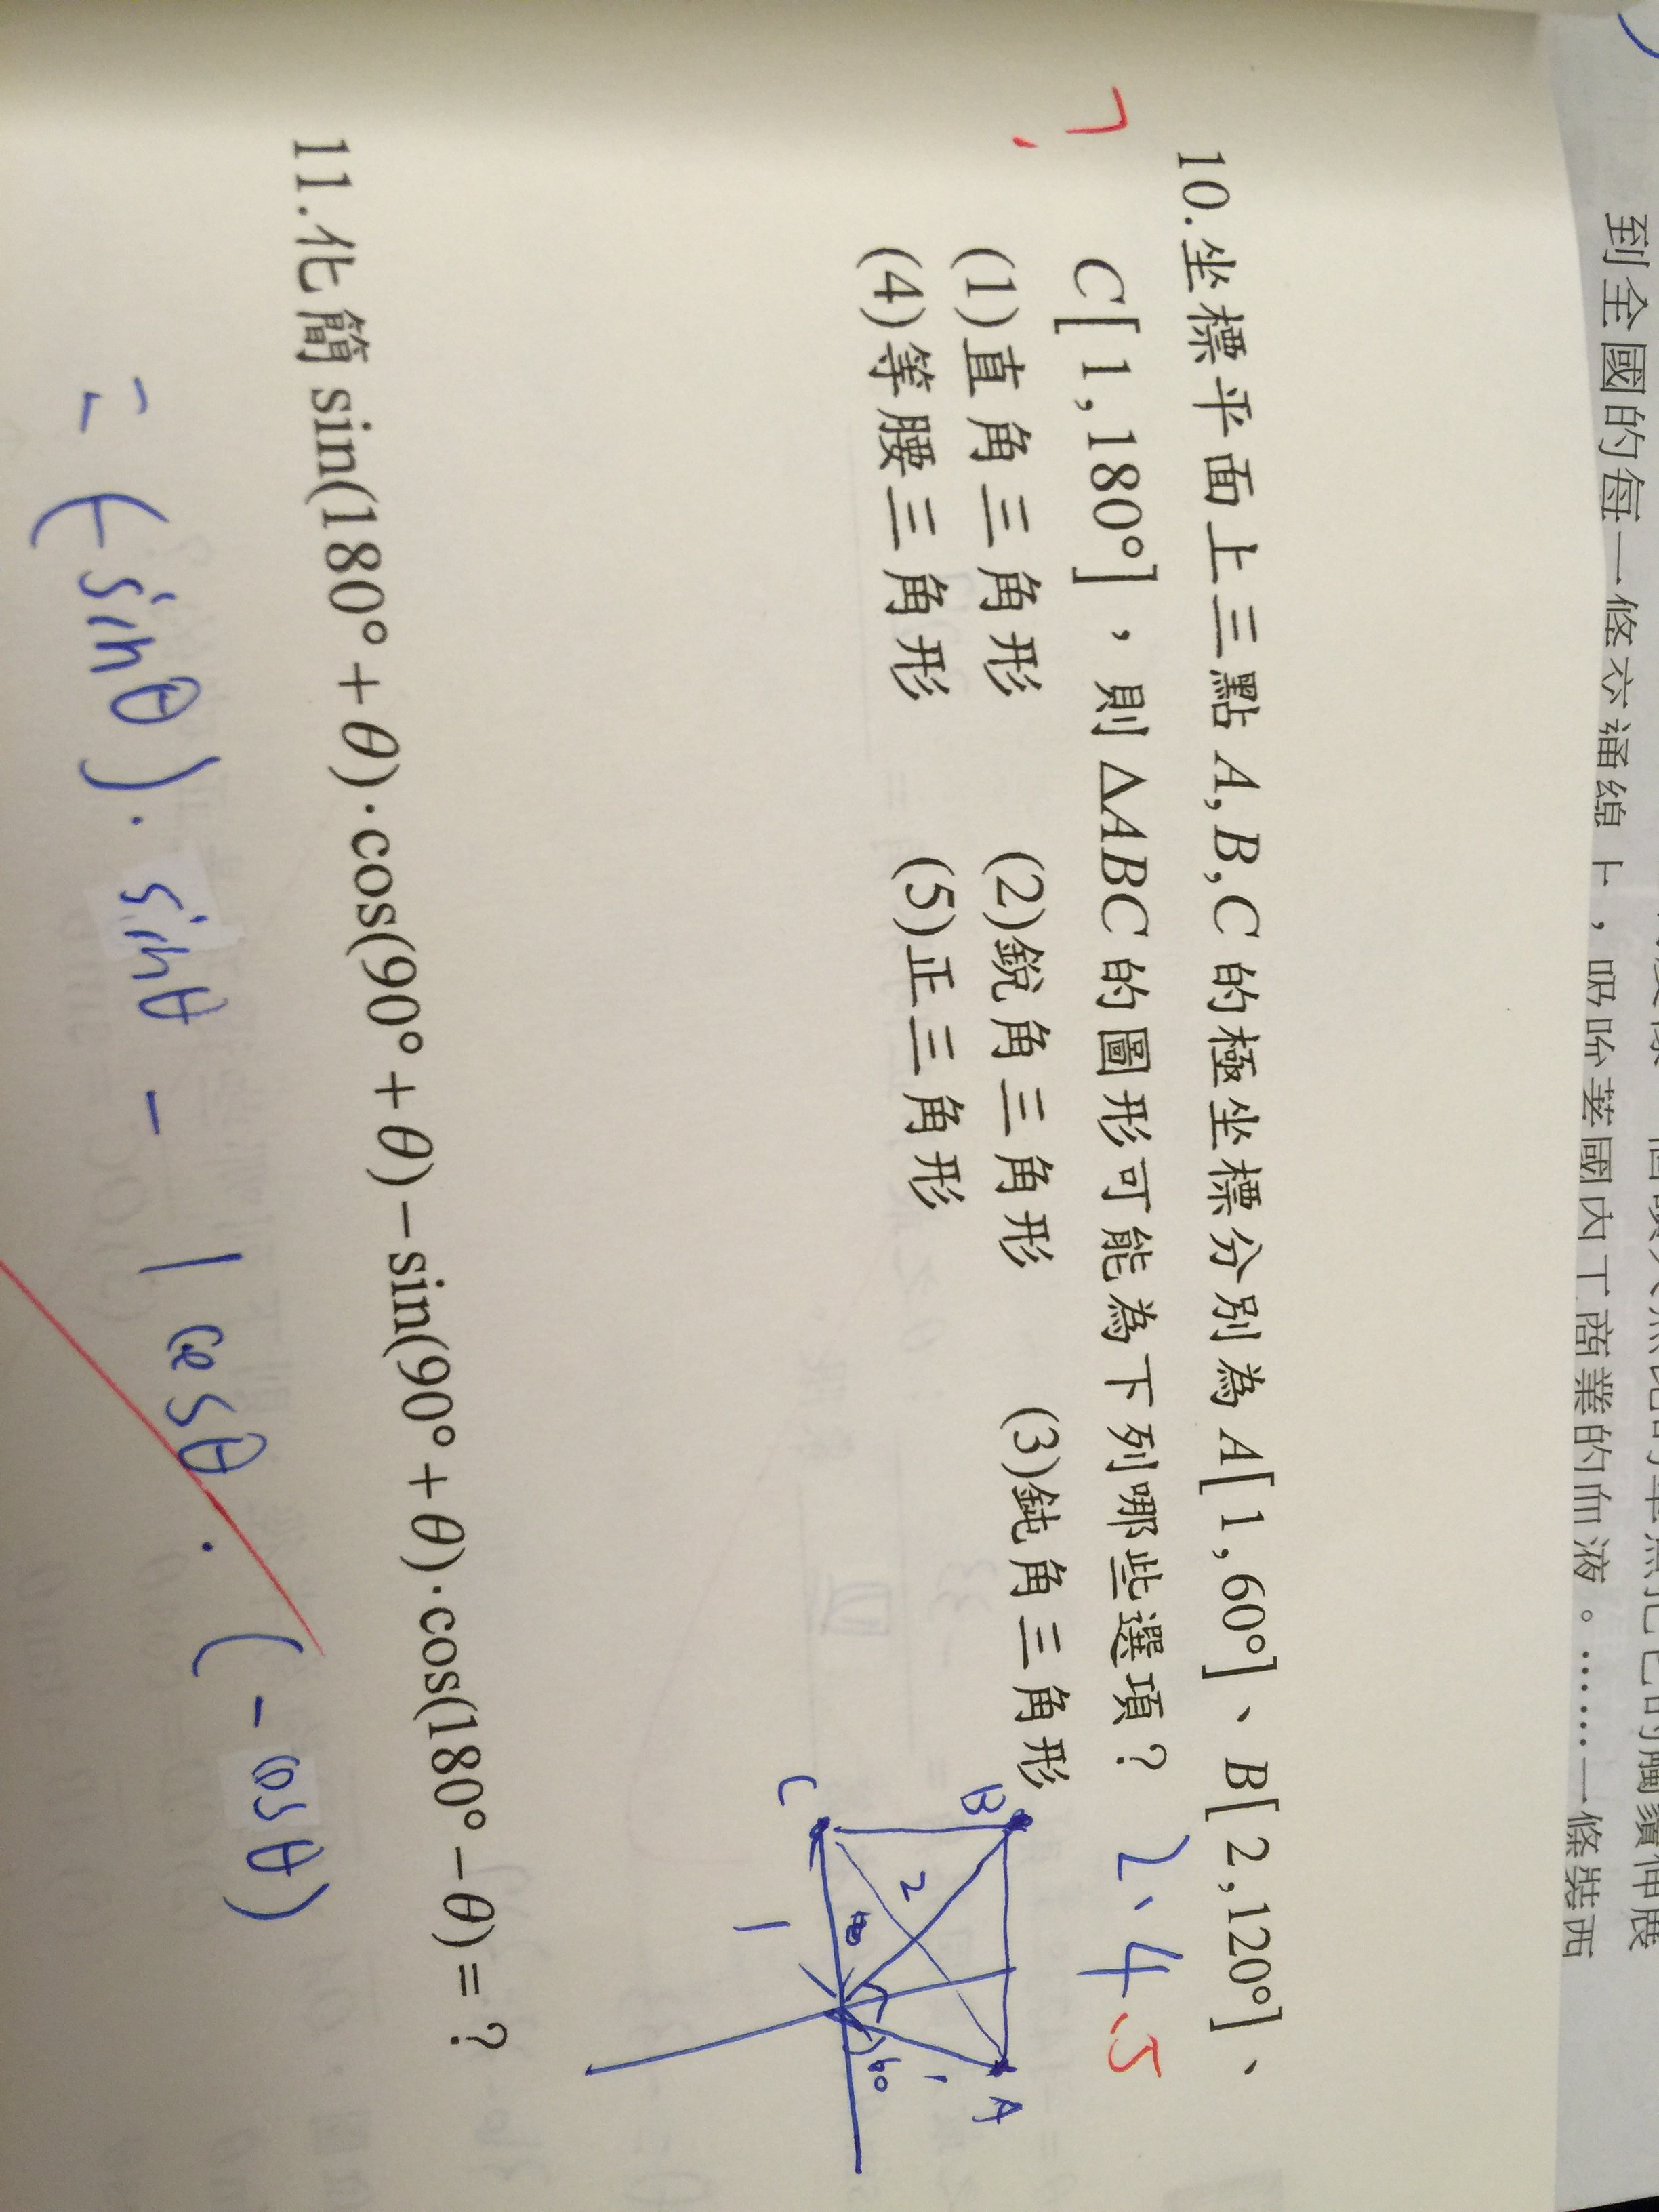 到全國的每一條交通線上,吸吮著國內工商業的血液。……一條裝西
10.坐標平面上三點A,B,C的極坐標分別為A[1,60°]、B[2,120°]、
C[1,180°],則△ABC的圖形可能為下列哪些選項?
2、4、5
(1)直角三角形 (2)銳角三角形 (3)鈍角三角形
(4)等腰三角形 (5)正三角形
B
A
C
2
1
1
60
11.化簡sin(180°+θ)·cos(90°+θ)−sin(90°+θ)·cos(180°−θ)=?
= (-sinθ)· sinθ - | cosθ · (-cosθ)